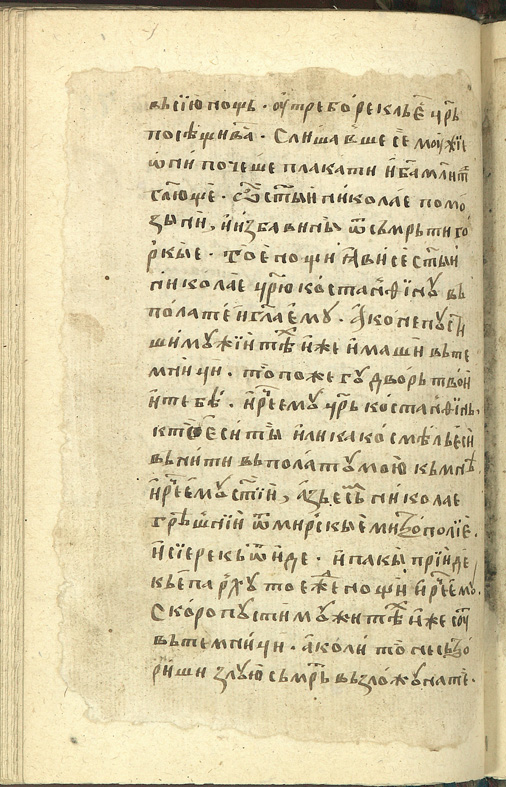 въ сїю нощь · ѹтре бо рекль є҆ цр҃ь
посѣщи ва̀ · Слишавше сѐ моужїе
ѡни почеше плакати и҆ б҃а млити
глю́ще · ст҃ыи николае помо
зы ни, и҆ избави ны ѿ съмрьти го
ркыѐ · тое нощи ꙗ҆ви се ст҃ыи
николае цр҃ю костандїну въ
полате и҆ гл҃а ему · а҆ко не пустиши
ши мужїи тѣх и҆же имаши въ те
мници · то пожегу дворь твои
и҆ тебѐ · и҆ рече ему цр҃ь костандїнь,
кто еси ты и҆ли како смѣль еси
вънити въ полату мою къ мнѣ
и҆ рече ему ст҃їи, а҆зь есмь николае
грѣшнїи ѿ мирскые митрополїе ·
и҆ сїе рекь ѿиде · и҆ пакы прїиде
кь епарху то еже нощи и҆ рече ему ·
Скоро пусти мужи тѣх и҆же соу
въ темници · а҆ коли то не сьтво
риши злую сьмрть възложу на те ·